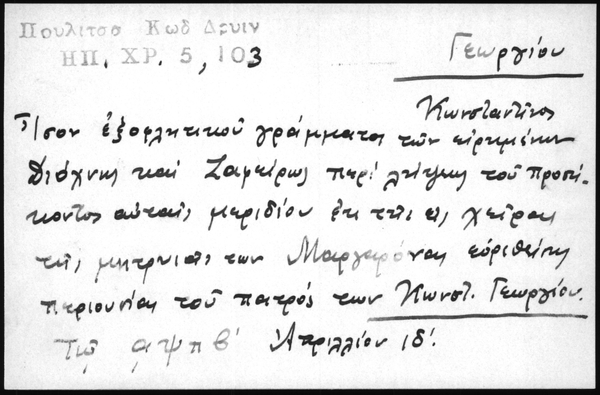 Πουλιτσα Κωδ Δρυιν
ΗΠ. ΧΡ. 5, 103
Γεωργίου
Κωνσταντῖνος
Ἴσον ἐξοφλητικοῦ γράμματος τῶν εἰρημένων
καὶ Ζαφείρως περὶ λήψεως τοῦ προσή-
κοντος αὐταῖς μεριδίου ἐκ τῆς εἰς χεῖρας
τῆς μητρυιᾶς των Μαργαρώνας εὑρεθείσης
περιουσίας τοῦ πατρός των Κωνστ. Γεωργίου.
Τῷ αψπβʹ Ἀπριλλίου ιδʹ.